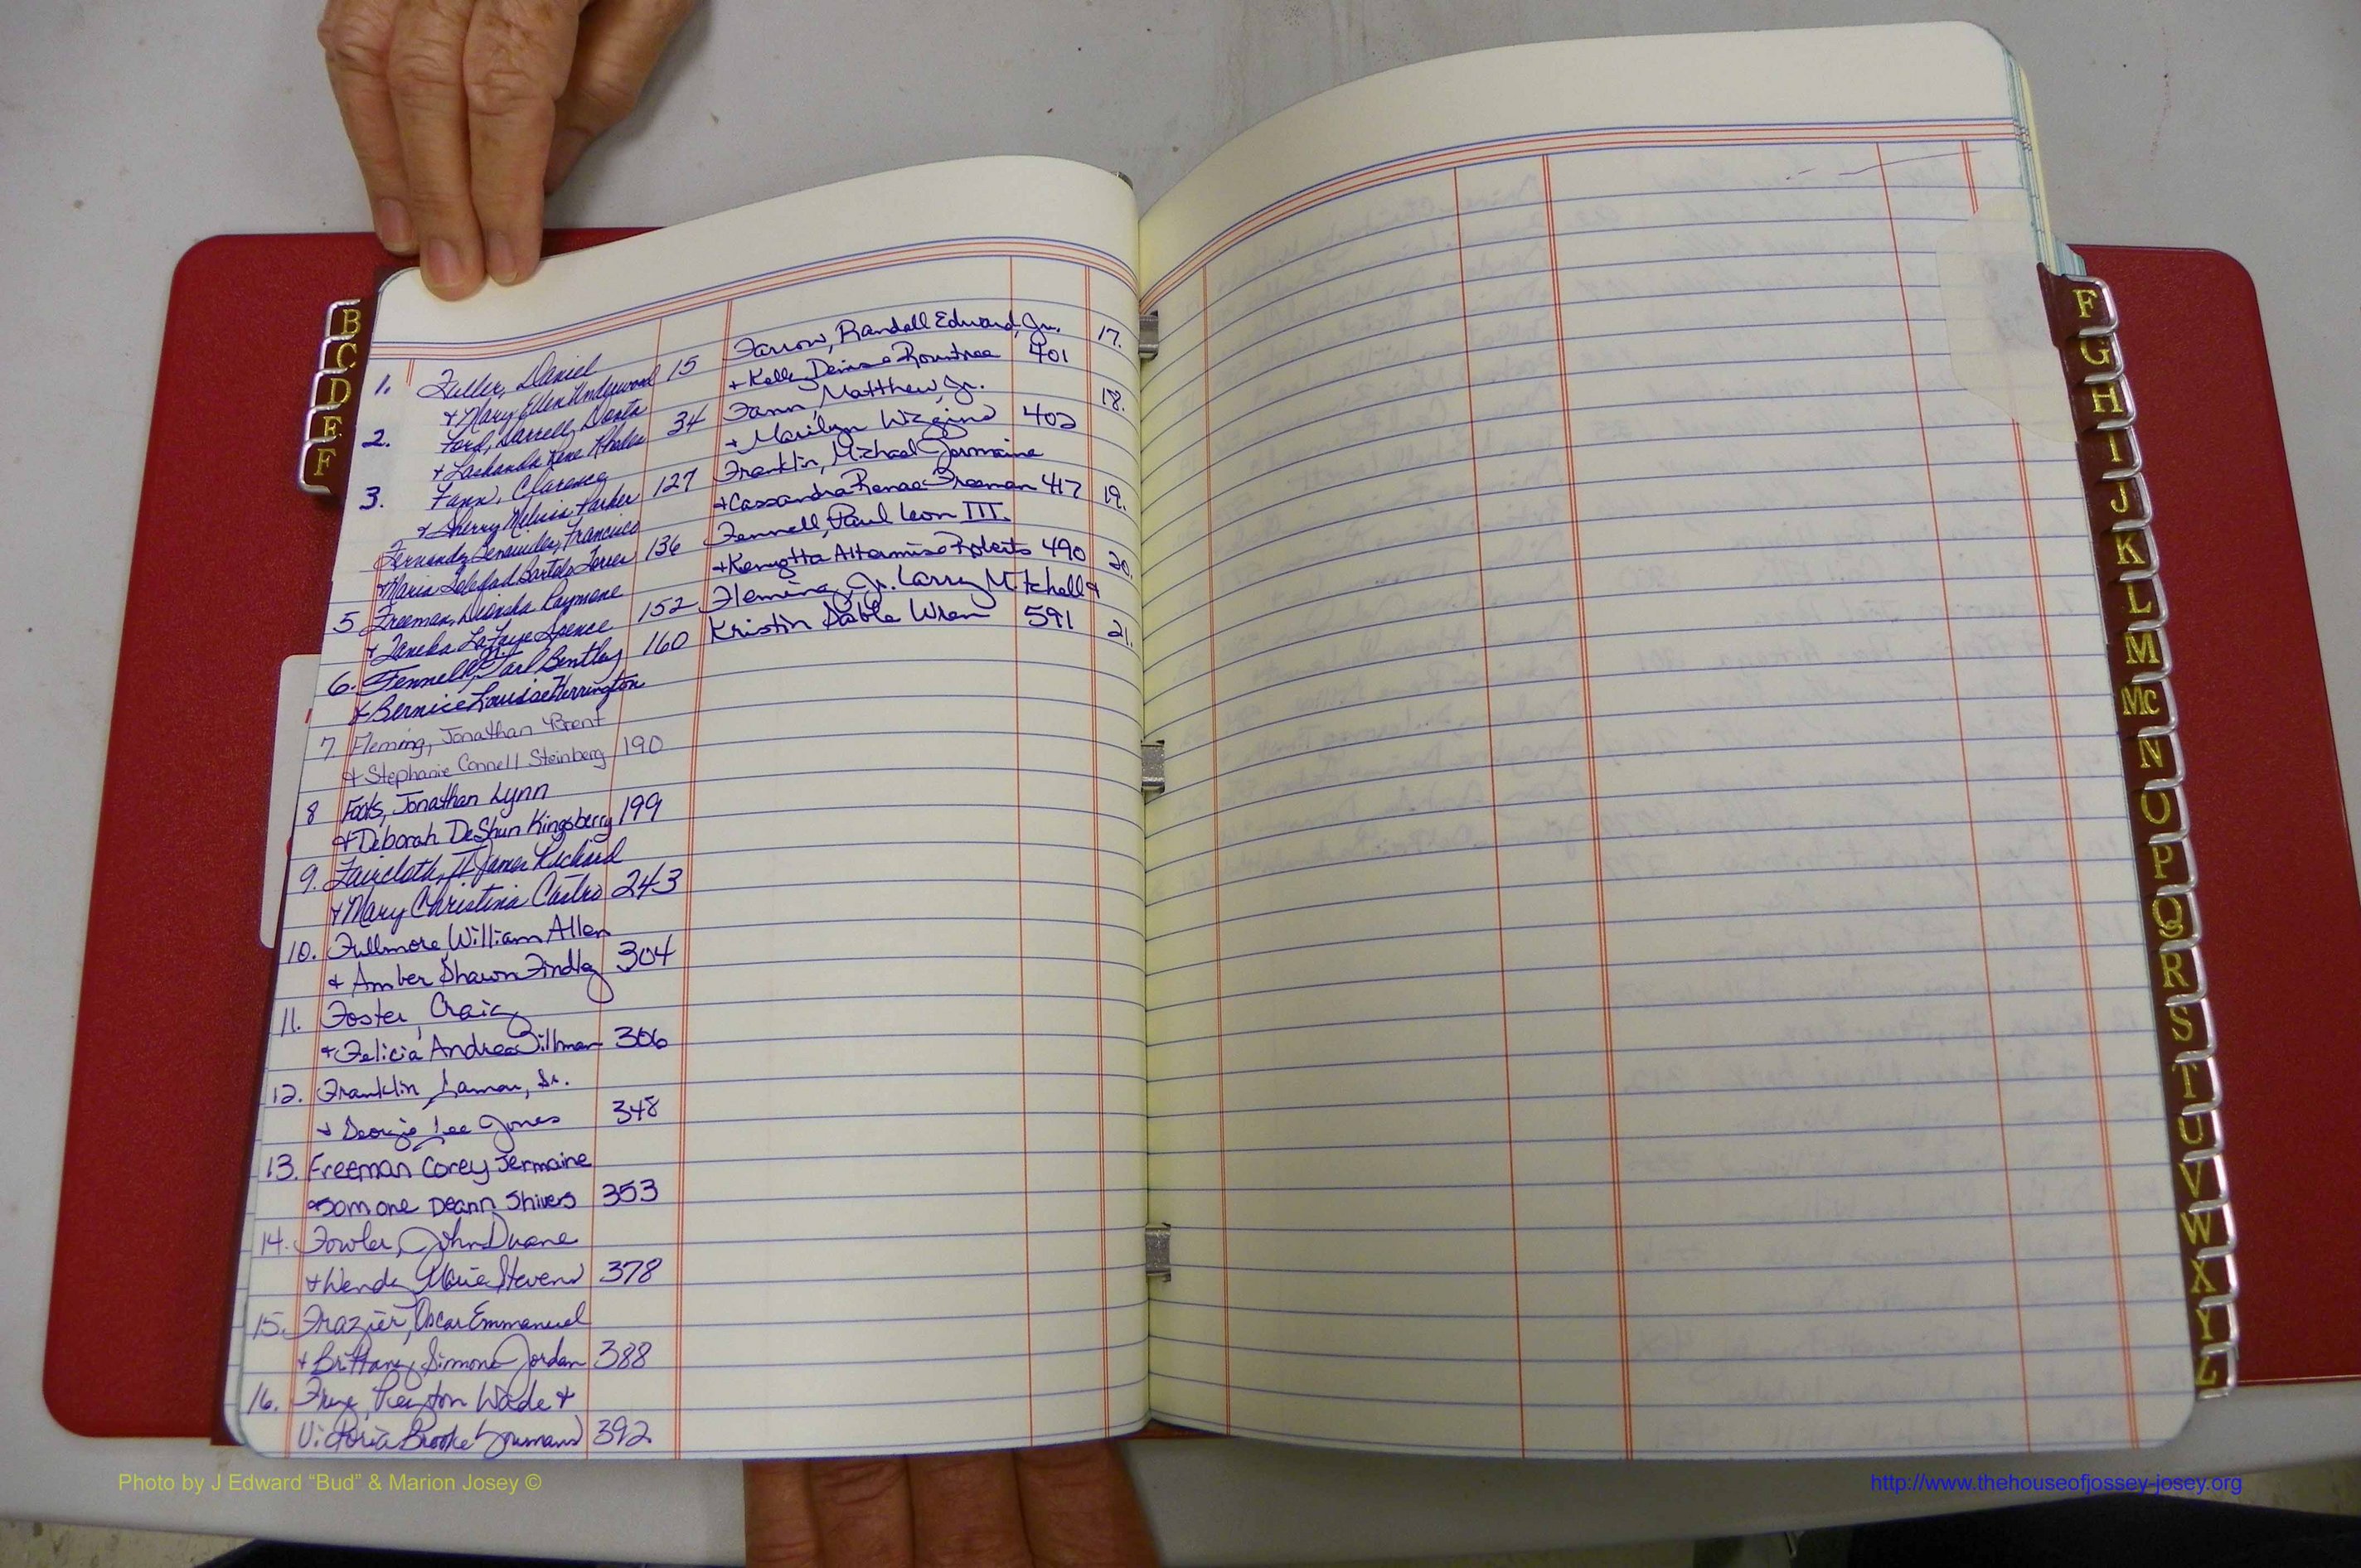 B
C
D
E
F
1. Fuller, Daniel
+ Mary Ellen Underwood 15
2. Ford, Darrell Donta
+ Lashanda Rene Rhodes 34
3. Fann, Clarence
+ Sherry Melissa Parker 127
Fernandez Francisco
+ Maria Torres 136
5 Freeman, Raymone
+ Taneka LaFaye Spence 152
6. Fennell, Jr. Carl Bentley 160
+ Bernice Louise Herrington
7 Fleming, Jonathan Brent
+ Stephanie Connell Steinberg 190
8 Foots, Jonathan Lynn
+ Deborah DeShun Kingsberry 199
9. Faircloth, II James Richard
+ Mary Christina Castro 243
10. Fullmore, William Allen
+ Amber Shawn Findley 304
11. Foster, Craig
+ Felicia Andrea Tillman 306
12. Franklin, Lamar, Sr.
+ Georgie Lee Jones 348
13. Freeman Corey Jermaine
+ Somone Deann Shivers 353
14. Fowler, John Duane
+ Wendy Marie Stevens 378
15. Frazier, Oscar Emmanuel
+ Brittany Simone Jordan 388
16. Frye, Peyton Wade +
Victoria Brooke Youmans 392
Farrow, Randall Edward, Jr. 17.
+ Kelly Denise Rountree 401
Fann, Matthew, Jr. 18.
+ Marilyn Wiggins 402
Franklin, Michael Jermaine
+ Cassandra Renae Freeman 417 19.
Fennell, Paul Leon III.
+ Roberts 490 20.
Fleming, Jr. Larry Mitchell +
Kristin Sable Wren 591 21.
F
G
H
I
J
K
L
M
Mc
N
O
P
Q
R
S
T
U
V
W
X
Y
Z
Photo by J Edward “Bud” & Marion Josey ©
http://www.thehouseofjossey-josey.org